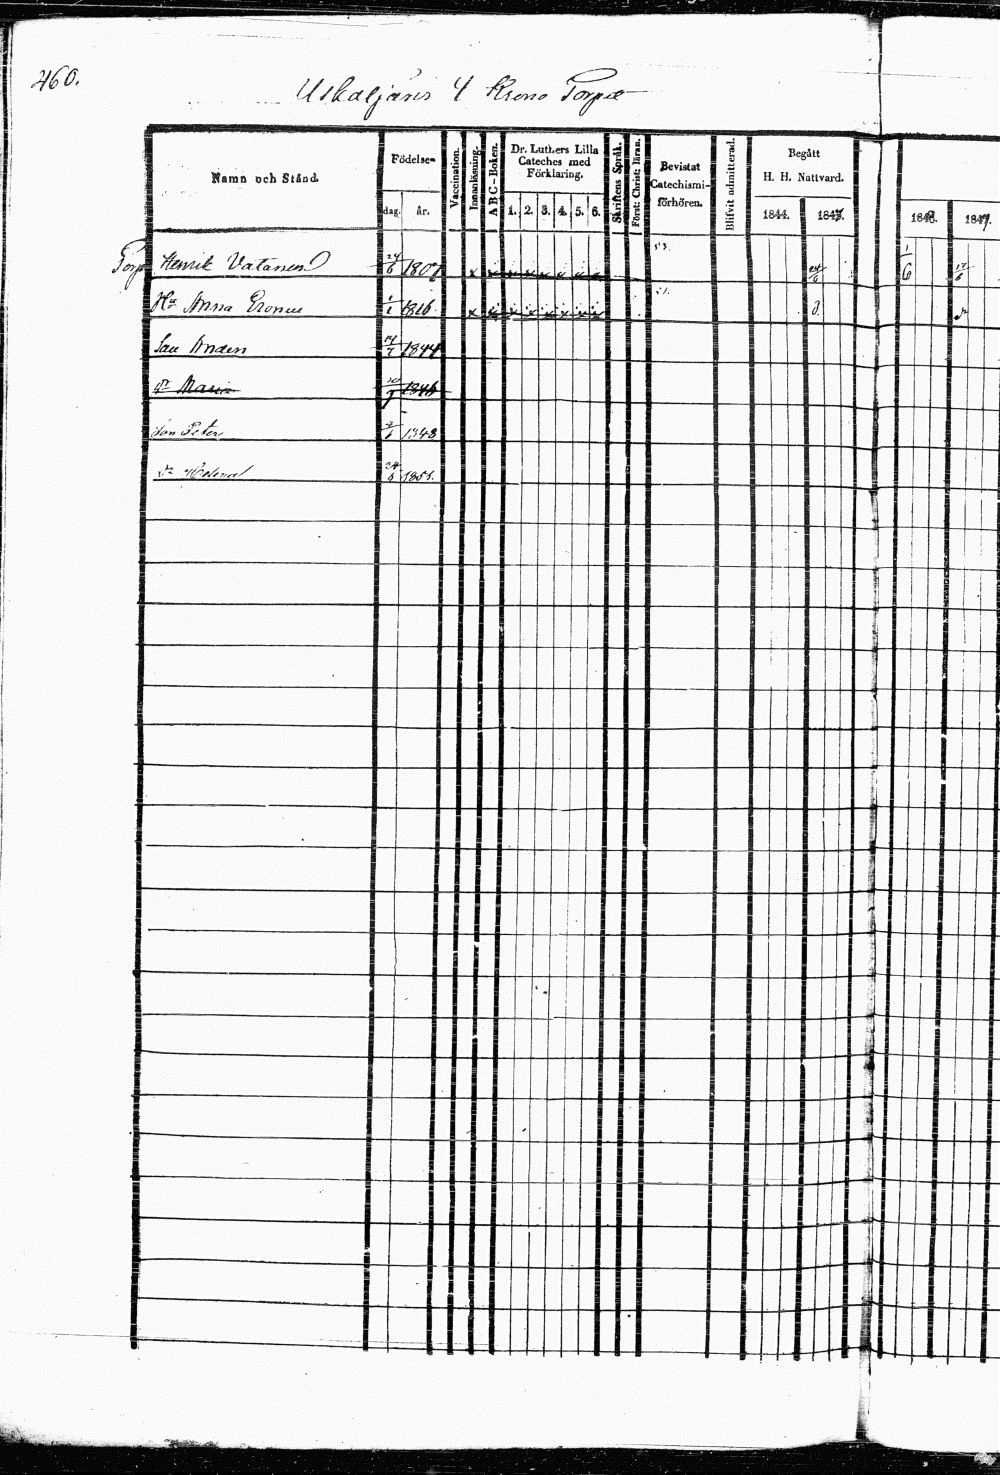 460.
Uskaljärvi 4 Krono Torp
Namn och Stånd.
Födelse-
dag. år.
Vaccination.
Innanläsning.
A B C - Boken.
Dr. Luthers Lilla
Cateches med
Förklaring.
1. 2. 3. 4. 5. 6.
Skriftens Språk.
Först: Christ: läran.
Bevistat
Catechismi-
förhören.
Blifvit admitterad.
Begått
H. H. Nattvard.
1844. 1845.
1846. 1847.
Torp Henrik Vatanen 24/6 1807 x x x x x x x x 53. 24/6 1/6
Hu Anna Eronen 1/1 1816 x x x x x x x x 51.
Son Anders 1844
Dr Maria 1846
Son Peter 1848
Dr Helena 24/5 1851.